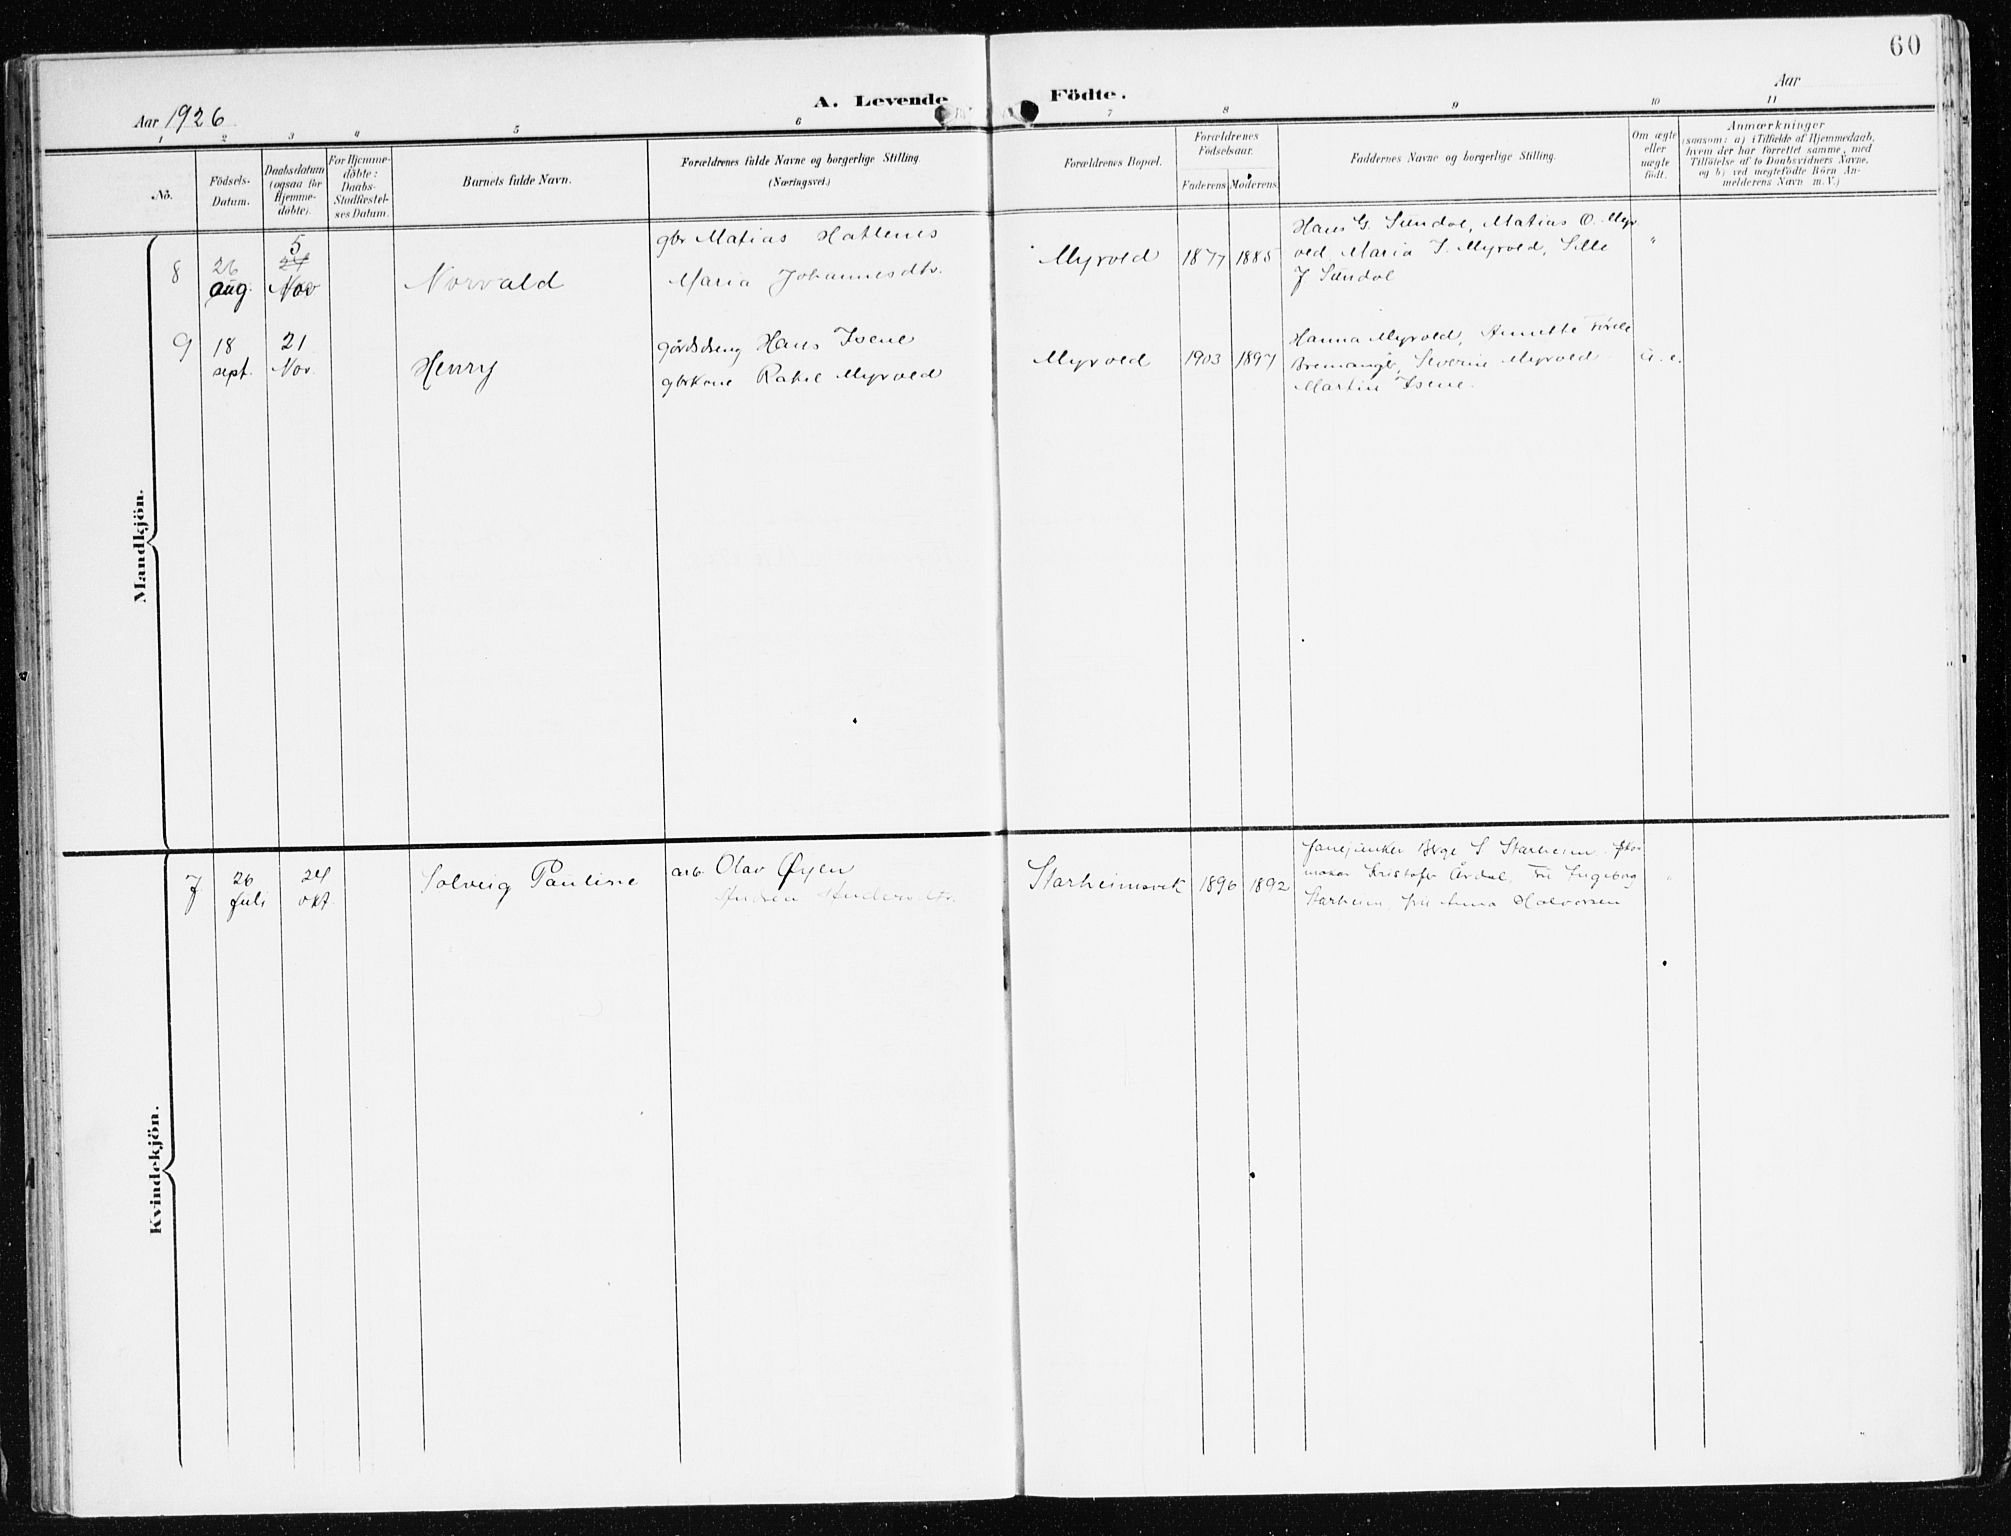 60
Aar 1926
A. Levende Födte.
Aar
1 2 3 4 5 6 7 8 9 10 11
No.
Födsels-
Datum.
Daabsdatum
(ogsaa för
Hjemme-
döbte).
For Hjemme-
döbte:
Daabs-
Stadfæstel-
ses Datum.
Barnets fulde Navn.
Forældrenes fulde Navne og borgerlige Stilling.
(Næringsvei.)
Forældrenes Bopæl.
Forældrenes
Födselsaar.
Faderens. Moderens.
Faddernes Navne og borgerlige Stilling.
Om ægte
eller
uægte
födt.
Anmærkninger
(saasom: a) i Tilfælde af Hjemmedaab,
hvem der har forrettet samme, med
Tilföielse af to Daabsvidners Navne,
og b) ved uægtefödte Börn An-
melderens Navn m. V.)
Mandkjön.
8
26
aug.
5
Nov
Norvald
gbr Matias Hatlenes
Maria Johannesdtr.
Myrvold
1877
1885
Hans G. Sundal, Matias O. Myr
vold, Maria J. Myrvold, Sille
J Sundal
"
9
18
sept.
21
Nov.
Henry
gårdsdreng Hans Isene
gbrkone Rakel Myrvold
Myrvold
1903
1897
Hanna Myrvold, Anette
Bremanger, Severin Myrvold
Martin Isene.
u. e.
Kvindekjön.
7
26
juli
24
okt
Solveig Pauline
arb. Olav Øyen
Andrea Andersdtr.
Starheimsvik
1896
1892
fanejunker S Starheim,
Kristofer Årdal, fru Ingeborg
Starheim, fru Anna Halvorsen
"